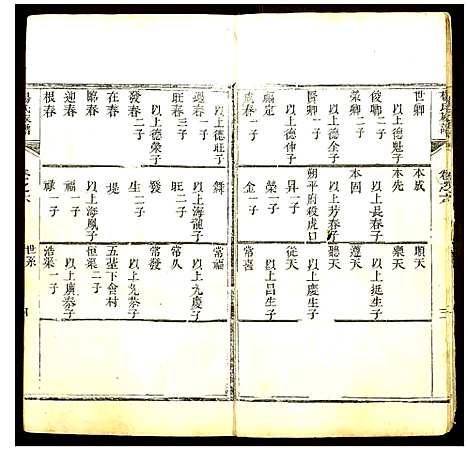 世卿
俊卿二子
以上德魁子
榮卿二子
爵卿一子
以上德仲子
福定
茂春一子
本成
本先
以上長春子
本固
以上芳春子
朔平府殺虎口
昇一子
榮一子
金一子
順天
樂天
以上挺生子
遵天
聽天
以上慶生子
從天
以上昌生子
常喜
以上德旺子
遇春一子
旺春三子
以上德榮子
發春二子
在春
陽春二子
迎春
根春
舞
以上海龍子
旺二子
發
以上海鳳子
堤
福一子
祿一子
常福
以上九慶子
常發
以上九恭子
五臺下會村
恒渠二子
以上廣泰子
浩渠一子
世系